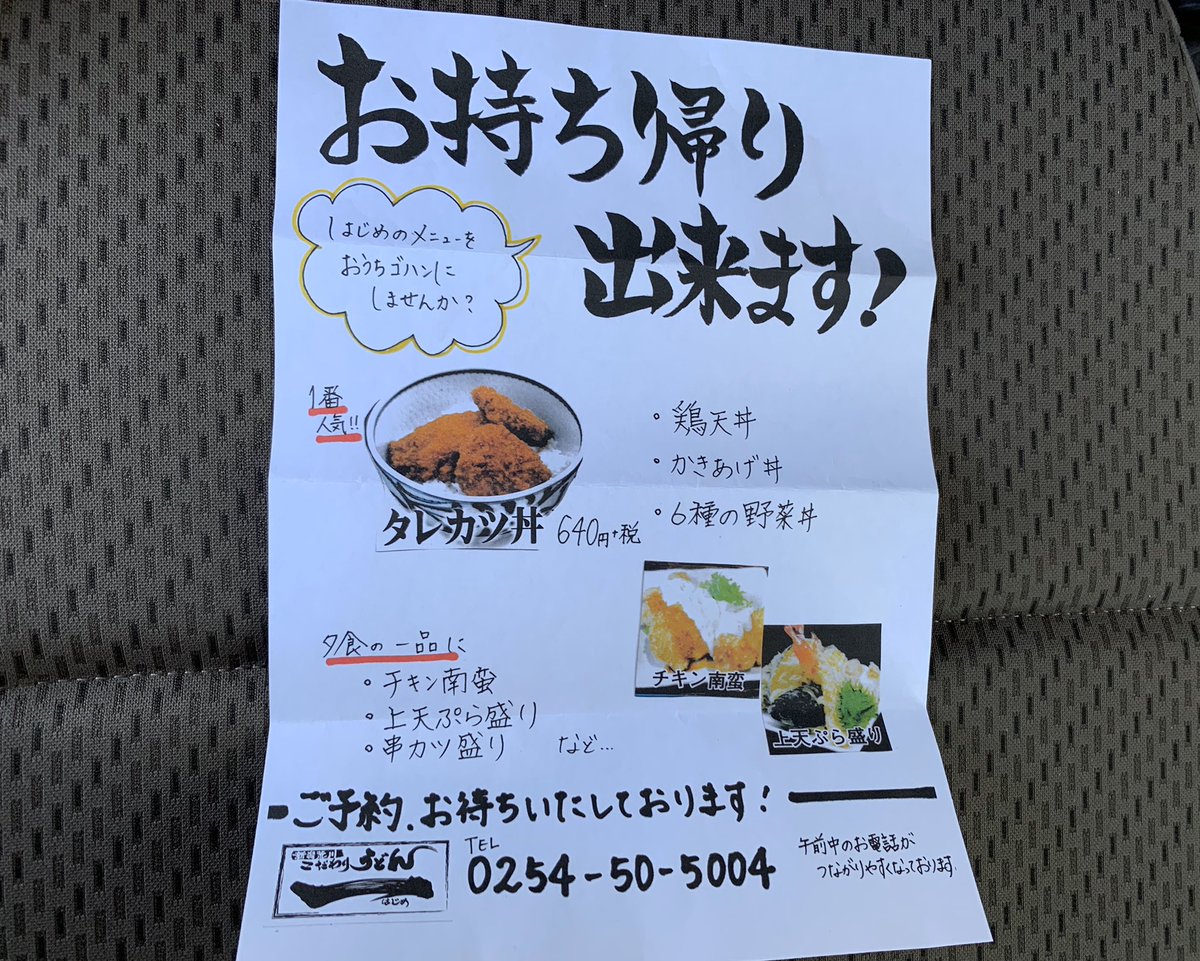 お持ち帰り
出来ます!
はじめのメニューを
おうちゴハンに
しませんか?
1番
人気!!
タレカツ丼 640円+税
・鶏天丼
・かきあげ丼
・6種の野菜丼
夕食の一品に
・チキン南蛮
・上天ぷら盛り
・串カツ盛り など…
チキン南蛮
上天ぷら盛り
ご予約、お待ちいたしております!
こだわりうどん
はじめ
TEL
0254-50-5004
午前中のお電話が
つながりやすくなっております。